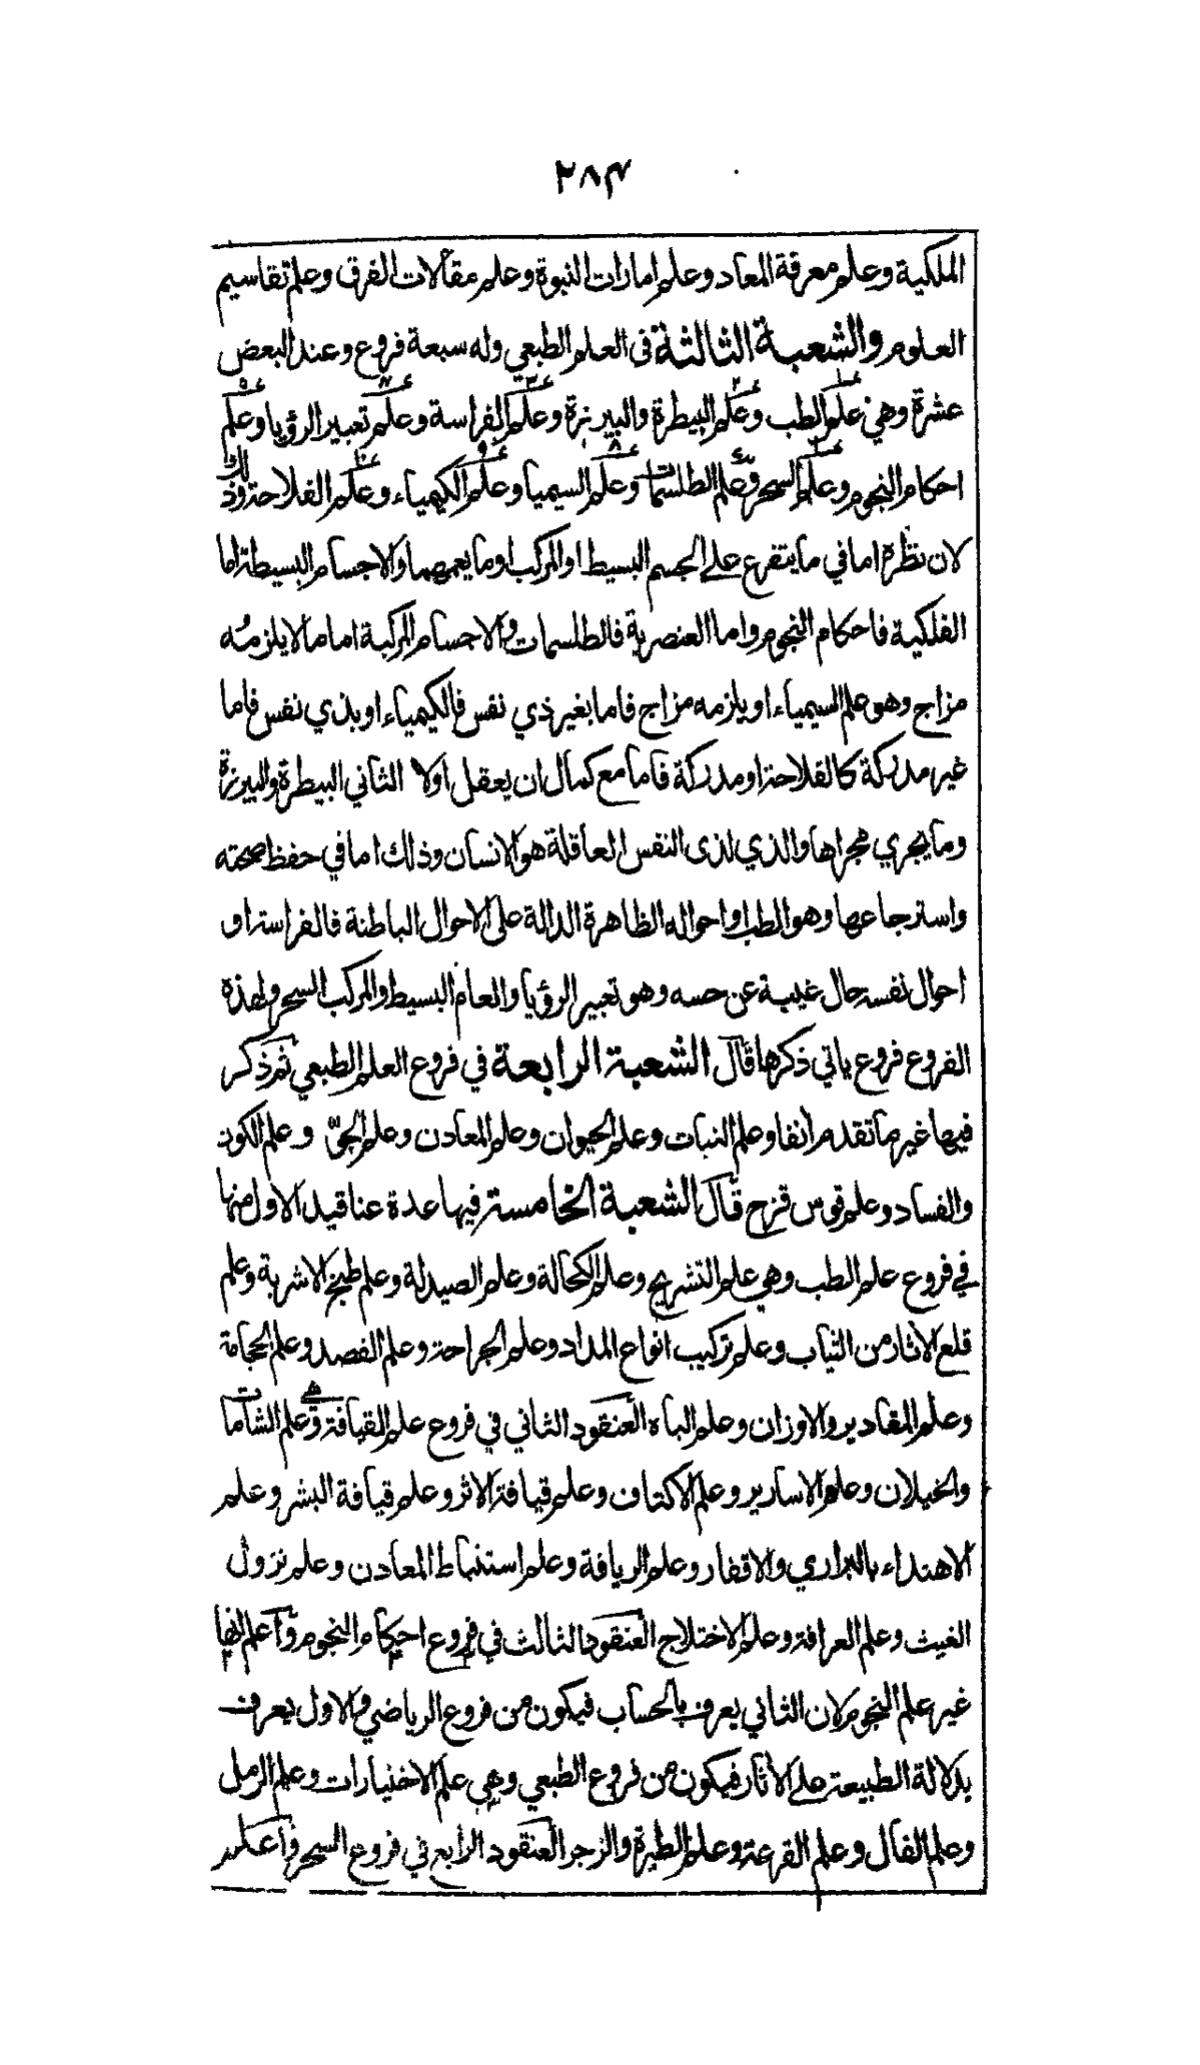 ٢٨٣
الملكية وعلم معرفة المعاد وعلم امارات النبوة وعلم مقالات الفرق وعلم تقاسيم
العلوم والشعبة الثالثة فى العلم الطبعي وله سبعة فروع وعند البعض
عشرة وهي علم الطب وعلم البيطرة والبيزرة وعلم الفراسة وعلم تعبير الرؤيا وعلم
احكام النجوم وعلم السحر وعلم الطلسمات وعلم السيميا وعلم الكيمياء وعلم الفلاحة وذلك
لان نظره اما في ما يتفرع على الجسم البسيط او المركب او ما يعمهما والاجسام البسيطة اما
الفلكية فاحكام النجوم واما العنصرية فالطلسمات والاجسام المركبة اما ما لا يلزمه
مزاج وهو علم السيمياء او يلزمه مزاج فاما بغير ذي نفس فالكيمياء او بذي نفس فاما
غير مدركة كالفلاحة او مدركة فاما مع كمال ان يعقل اولا الثاني البيطرة والبيزرة
وما يجري مجراها والذي لذى النفس العاقلة هو الانسان وذلك اما في حفظ صحته
واسترجاعها وهو الطب او احواله الظاهرة الدالة على الاحوال الباطنة فالفراسة او
احوال نفسه حال غيبة عن حسه وهو تعبير الرؤيا والعام البسيط والمركب السحر ولهذه
الفروع فروع ياتي ذكرها قال الشعبة الرابعة في فروع العلم الطبعي ثم ذكر
فيها غير ما تقدم انفا وعلم النبات وعلم الحيوان وعلم المعادن وعلم الجو وعلم الكون
والفساد وعلم قوس قزح قال الشعبة الخامسة فيها عدة عناقيد الاول منها
في فروع علم الطب وهي علم التشريح وعلم الكحالة وعلم الصيدلة وعلم طبخ الاشربة وعلم
قلع الاثار من الثياب وعلم تركيب انواع المداد وعلم الجراحة وعلم الفصد وعلم الحجامة
وعلم المقادير والاوزان وعلم الباه العنقود الثاني في فروع علم القيافة وهي علم الشامات
والخيلان وعلم الاسارير وعلم الاكتاف وعلم قيافة الاثر وعلم قيافة البشر وعلم
الاهتداء بالبراري والاقفار وعلم الريافة وعلم استنباط المعادن وعلم نزول
الغيث وعلم العرافة وعلم الاختلاج العنقود الثالث في فروع احكام النجوم واعلم انها
غير علم النجوم لان الثاني يعرف بالحساب فيكون من فروع الرياضي والاول يعرف
بدلالة الطبيعة على الاثار فيكون من فروع الطبعي وهي علم الاختيارات وعلم الرمل
وعلم الفال وعلم القرعة وعلم الطيرة والزجر العنقود الرابع في فروع السحر واعلم